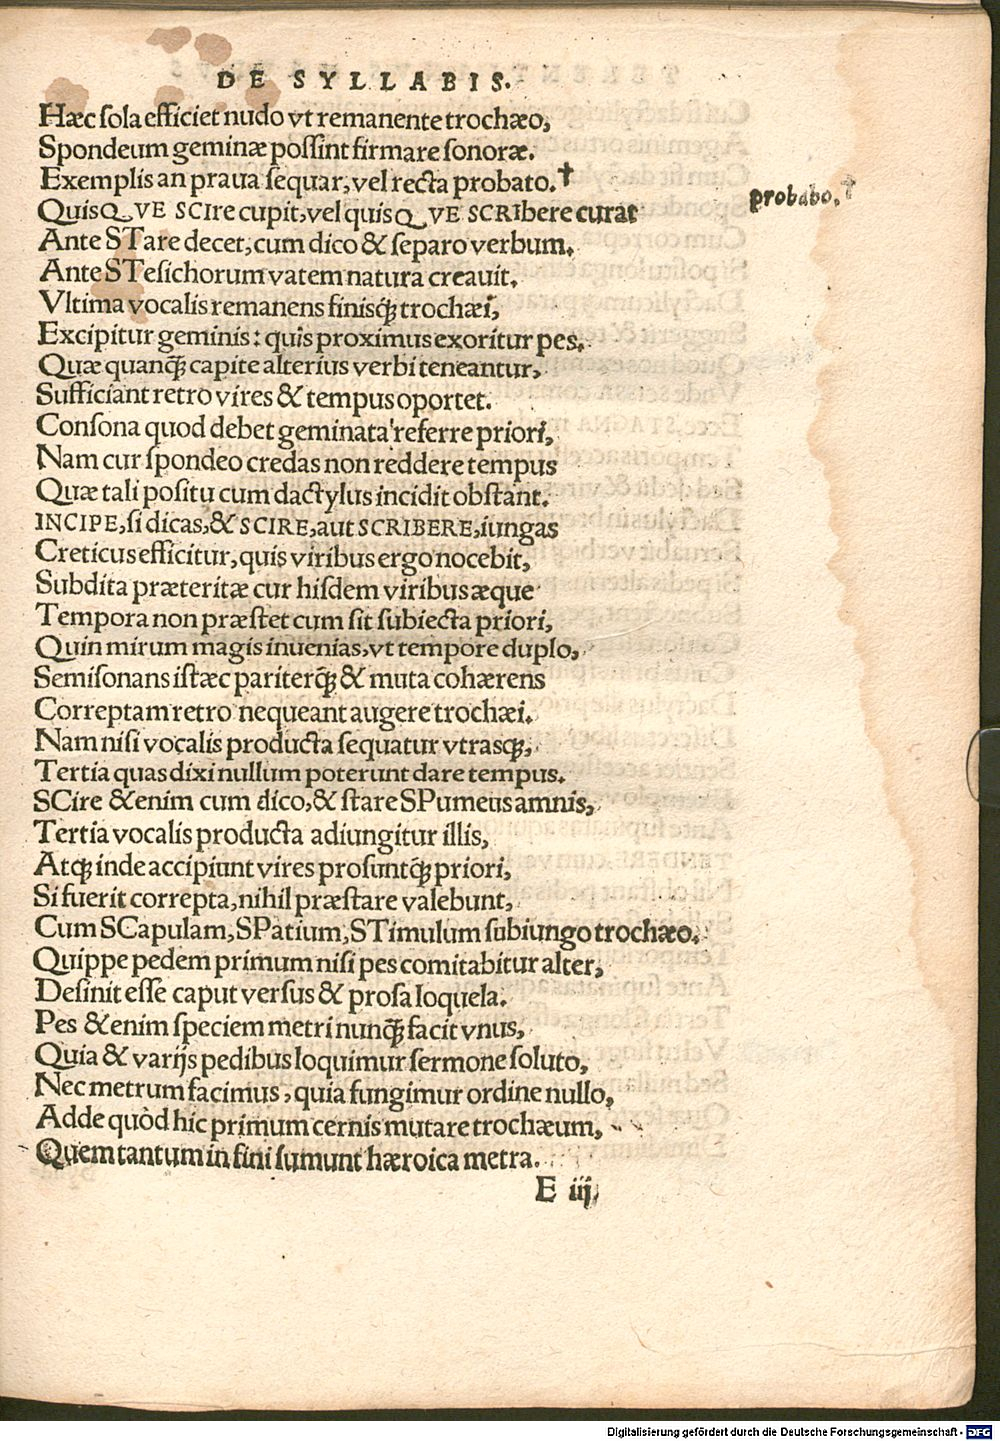 DE SYLLABIS.
Hæc sola efficiet nudo vt remanente trochæo,
Spondeum geminæ possint firmare sonoræ.
Exemplis an praua sequar, vel recta probato.†
probabo.†
QuisQVE SCIre cupit, vel quisQVE SCRIbere curat
Ante STare decet, cum dico & separo verbum.
Ante STesichorum vatem natura creauit.
Vltima vocalis remanens finisq; trochæi,
Excipitur geminis: quis proximus exoritur pes.
Quæ quanq; capite alterius verbi teneantur,
Sufficiant retro vires & tempus oportet.
Consona quod debet geminata referre priori,
Nam cur spondeo credas non reddere tempus
Quæ tali positu cum dactylus incidit obstant.
INCIPE, si dicas, & SCIRE, aut SCRIBERE, iungas
Creticus efficitur, quis viribus ergo nocebit,
Subdita præteritæ cur hisdem viribus æque
Tempora non præstet cum sit subiecta priori,
Quin mirum magis inuenias, vt tempore duplo,
Semisonans istæc pariterq; & muta cohærens
Correptam retro nequeant augere trochæi.
Nam nisi vocalis producta sequatur vtrasq;,
Tertia quas dixi nullum poterunt dare tempus.
SCire &enim cum dico, & stare SPumeus amnis,
Tertia vocalis producta adiungitur illis,
Atq; inde accipiunt vires prosuntq; priori,
Si fuerit correpta, nihil præstare valebunt,
Cum SCapulam, SPatium, STimulum subiungo trochæo.
Quippe pedem primum nisi pes comitabitur alter,
Desinit esse caput versus & prosa loquela.
Pes &enim speciem metri nunq; facit vnus,
Quia & varijs pedibus loquimur sermone soluto,
Nec metrum facimus, quia fungimur ordine nullo,
Adde quòd hic primum cernis mutare trochæum,
Quem tantum in fini sumunt hæroica metra.
E iij
Digitalisierung gefördert durch die Deutsche Forschungsgemeinschaft - DFG